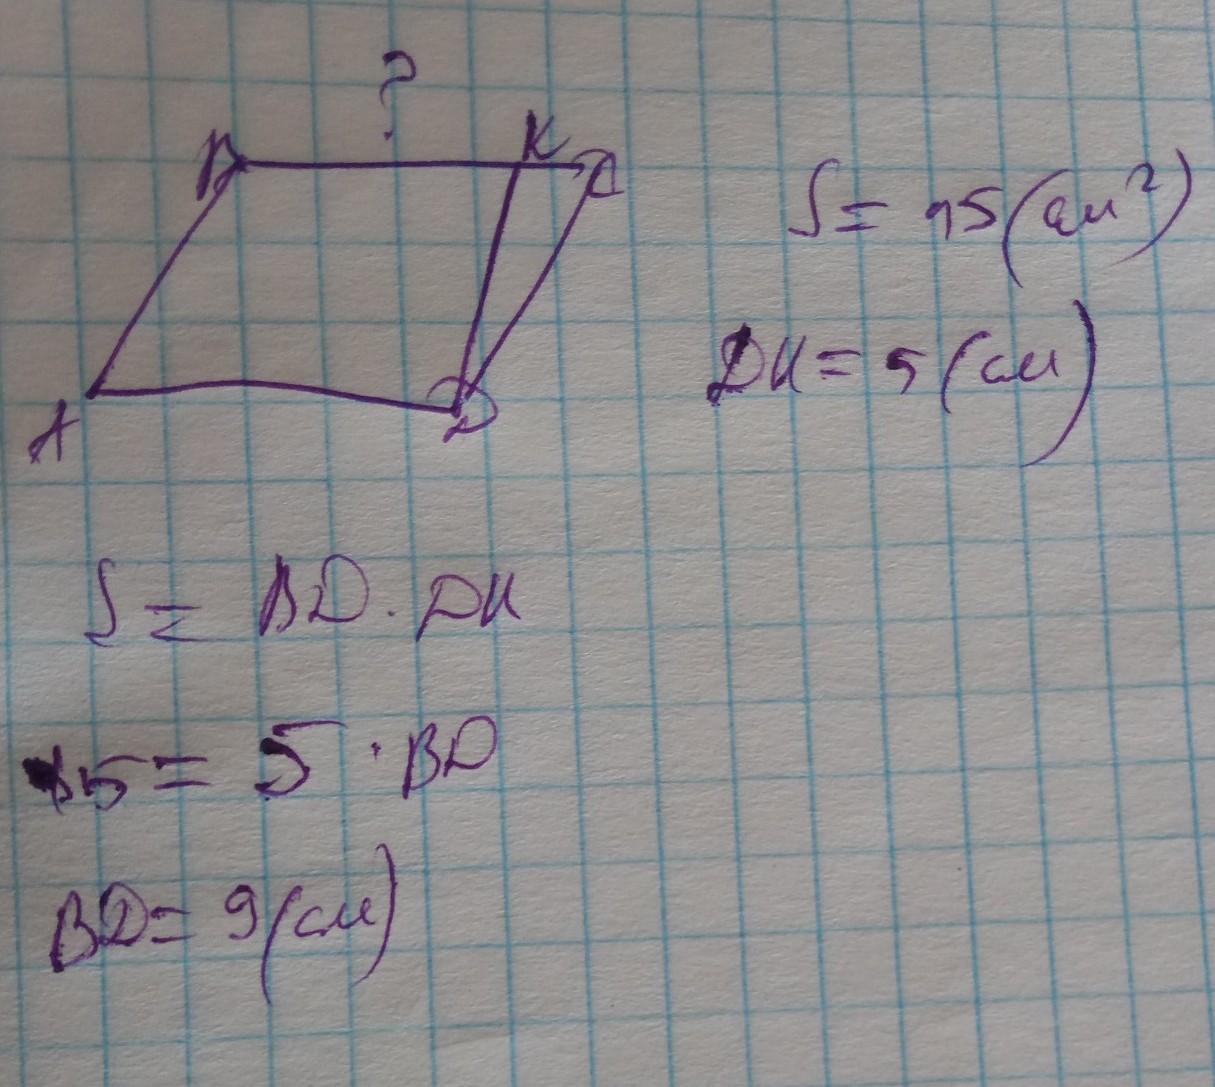 ?
B K C
S = 45 (см²)
DK = 5 (см)
A D
S = BD · DK
45 = 5 · BD
BD = 9 (см)